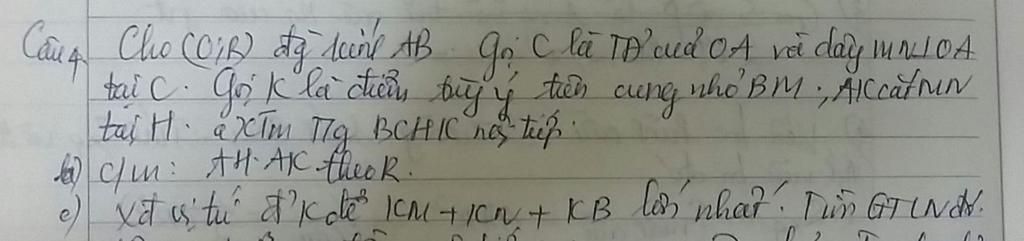 Câu 4 Cho (O;R) đg kính AB. Gọi C là TĐ' của OA vẽ dây MN⊥OA
tại C. Gọi K là điểm tùy ý trên cung nhỏ BM; AK cắt MN
tại H. a) Tg BCHK nội tiếp.
b) c/m: AH.AK theo R.
c) Xđ vị trí đ' K để KM + KN + KB lớn nhất. Tìm GTLN đó.